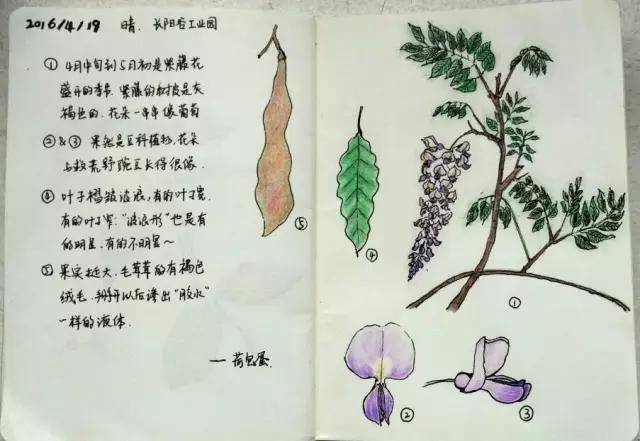 2016/4/19 晴. 长阳谷工业园
① 4月中旬到5月初是紫藤花
盛开的季节. 紫藤的树皮是灰
褐色的. 花朵一串串像葡萄
②&③ 果然是豆科植物, 花朵
与救荒野豌豆长得很像.
④ 叶子褶皱波浪, 有的叶子宽
有的叶子窄; "波浪形"也是有
的明显, 有的不明显~
⑤ 果实挺大, 毛茸茸的有褐色
绒毛. 掰开以后渗出"胶水"
一样的液体.
— 荷包蛋.
⑤
④
①
②
③